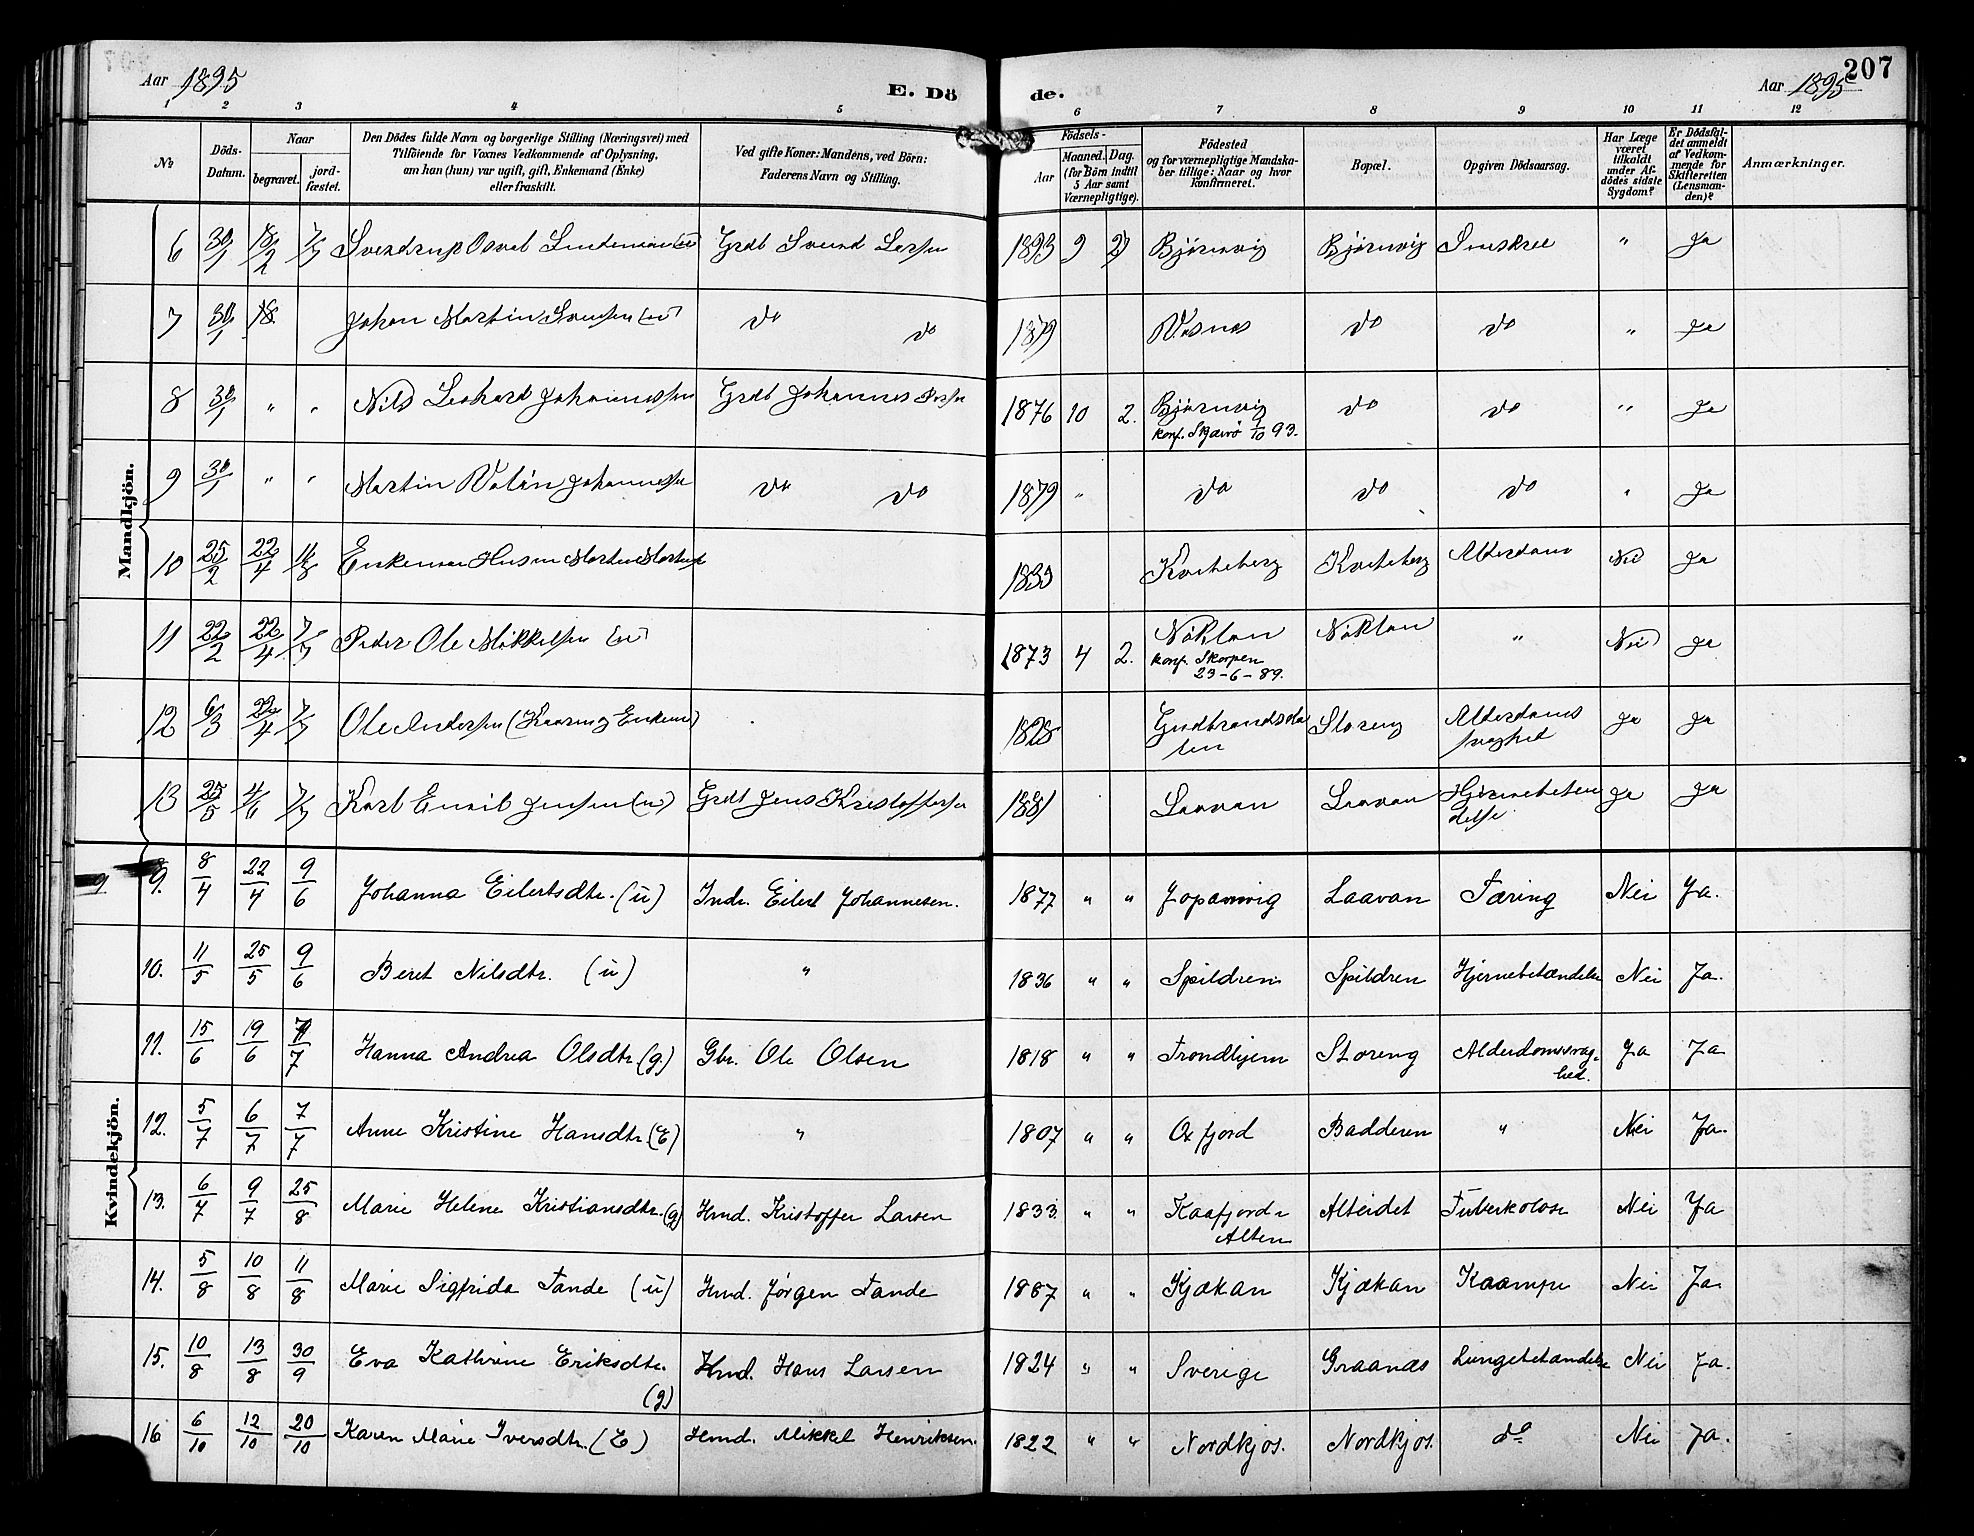 207
Aar 1895
E. Dö de.
Aar 1895
1 2 3 4 5 6 7 8 9 10 11 12
№
Döds-Datum.
Naar
begravet.
jord-fæstet.
Den Dödes fulde Navn og borgerlige Stilling (Næringsvei) med
Tilföiende for Voxnes Vedkommende af Oplysning,
om han (hun) var ugift, gift, Enkemand (Enke)
eller fraskilt.
Ved gifte Koner: Mandens, ved Börn:
Faderens Navn og Stilling.
Födsels-
Aar
Maaned. Dag.
(for Börn indtil
5 Aar samt
Værnepligtige).
Födested
og for værnepligtige Mandska-
ber tillige: Naar og hvor
konfirmeret.
Bopæl.
Opgiven Dödsaarsag.
Har Læge
været
tilkaldt
under Af-
dödes sidste
Sygdom?
Er Dödsfal-
det anmeldt
af Vedkom-
mende for
Skifteretten
(Lensman-
den)?
Anmærkninger.
Mandkjön.
6 30/1 18/2 7/7 Sverdrup Osvat (u) Grdb Svend Larsen 1893 9 Bjørnvig Bjørnvig Sneskree " Ja
7 30/1 18 Johan Martin Svensen (u) do do 1879 do do " Ja
8 30/1 " " Nils Leohard Johannessen Grdb Johannes 1876 10 2. Bjørnvig do do " Ja
konf. Skjærvø 1/10 93.
9 30/1 " " Martin Johannessen do do 1879 " do do do " Ja
10 25/2 22/4 Enkeman Morten Kviteberg Kviteberg Alderdom Nei Ja
11 22/2 22/4 7/7 Peder Ole Mikkelsen (u) 1873 4 2. Nøklan Nøklan " Nei Ja
konf. Skorpen
23-6-89.
12 6/3 22/4 7/7 Ole Andersen (Kaaring Enkem) 1828 Gudbrandsda Storeng Alderdoms Ja Ja
len svaghed
13 25/5 4/6 7/7 Karl Emil Jensen (u) Grdb Jens Kristoffersen 1881 Laavan Laavan Hjernebeten Ja Ja
delse
Kvindekjön.
9 9. 8/4 22/4 9/6 Johanna Eilertsdtr. (ü) Indr. Eilert Johannesen. 1877 " " Jopanvig Laavan Tæring Nei Ja.
10. 11/5 25/5 9/6 Beret Nilsdtr. (ü) " 1836 " " Spildren Spildren Hjernebetændelse Nei Ja.
11. 15/6 19/6 7/7 Hanna Andrea Olsdtr (g) Gbr. Ole Olsen 1818 " " Trondhjem Storeng Alderdomssvag- Ja Ja
hed.
12. 5/7 6/7 7/7 Anne Kristine Hansdtr. (E) " 1807 " " Oxfjord Badderen " Nei Ja.
13. 6/7 9/7 25/8 Marie Helene Kristiansdtr. (g) Hmd. Kristoffer Larsen 1833. " " Kaafjord i Alteidet Tuberkolose Nei Ja
Alten
14. 5/8 10/8 11/8 Marie Sigfrida Tande (ü) Hmd. Jørgen Tande 1887 " " Kjækan Kjækan Krampe Nei Ja.
15. 10/8 13/8 30/9 Eva Kathrine Eriksdtr. Hmd. Hans Larsen 1824 " " Sverige Graanæs Lungebetændelse Nei Ja.
(g)
16 6/10 12/10 20/10 Karen Marie Iversdtr. (E) Hmd. Mikkel Henriksen. 1822 " " Nordkjos. Nordkjos. do Nei Ja.